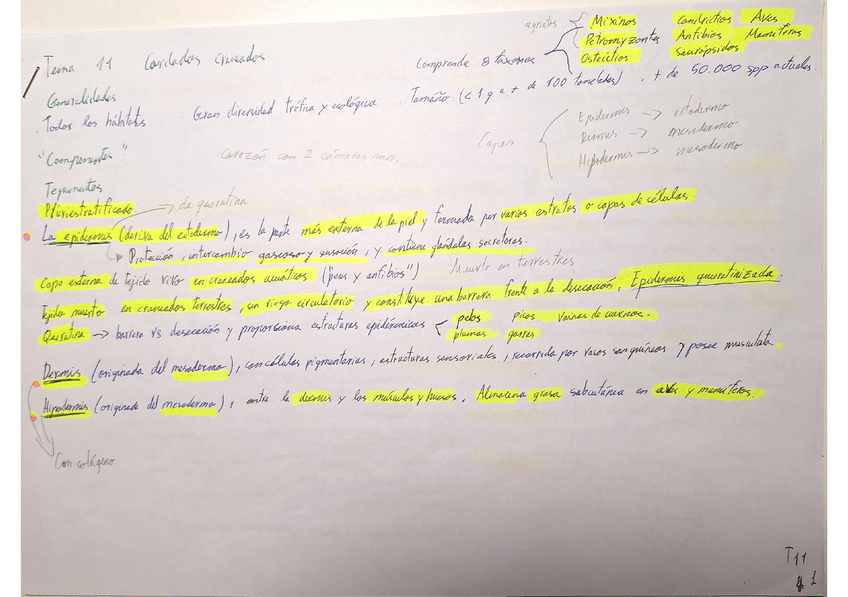 agnatos { Mixinos Condrictios Aves
Petromyzontes Anfibios Mamíferos
Osteictios Saurópsidos
Tema 11 Cordados Craneados Comprende 8 taxones
Generalidades
. Todos los hábitats Gran diversidad trófica y ecológica . Tamaño (< 1 g a + de 100 toneladas) . + de 50.000 spp actuales.
"Componentes" corazón con 2 cámaras
Capas { Epidermis → ectodermo
Dermis → mesodermo
Hipodermis → mesodermo
Tegumentos
Pluriestratificado → de queratina
La epidermis (deriva del ectodermo), es la parte más externa de la piel y formada por varios estratos o capas de células.
Protección, intercambio gaseoso y sensación, y contiene glándulas secretoras.
Capa externa de tejido vivo en craneados acuáticos ("peces y anfibios") Muerto en terrestres
Tejido muerto en craneados terrestres, sin riego circulatorio y constituye una barrera frente a la desecación. Epidermis queratinizada.
Queratina → barrera vs desecación y proporciona estructuras epidérmicas < pelos picos vainas de cuernos.
plumas garras
Dermis (originada del mesodermo), con células pigmentarias, estructuras sensoriales, recorrida por vasos sanguíneos y posee musculatura.
Hipodermis (originada del mesodermo), entre la dermis y los músculos y huesos. Almacena grasa subcutánea en aves y mamíferos.
Con colágeno
T11
1